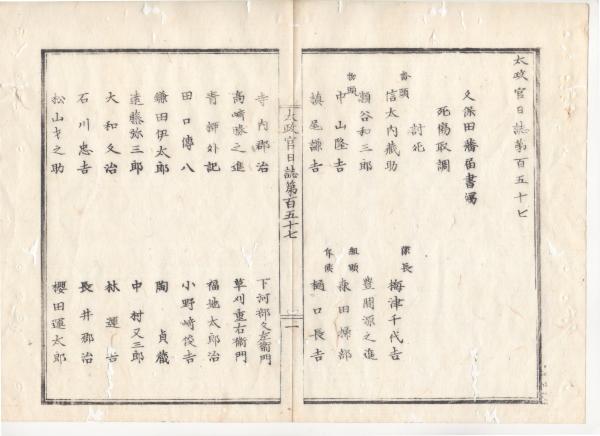 太政官日誌第百五十七
久保田藩届書寫
死傷取調
討死
番頭
信太内藏助
瀬谷和三郎
物頭
中山隆吉
槙尾謙吉
隊長
梅津千代吉
豊間源之進
組頭
糸田掃部
斥候
樋口長吉
太政官日誌第百五十七
一
寺内郡治
高崎勝之進
青柳外記
田口傳八
鎌田伊太郎
遠藤弥三郎
大和久治
石川忠吉
松山才之助
下河部久左衞門
草刈重右衞門
福地太郎治
小野崎俊吉
陶貞藏
中村又三郎
林運吉
長井郡治
櫻田運太郎